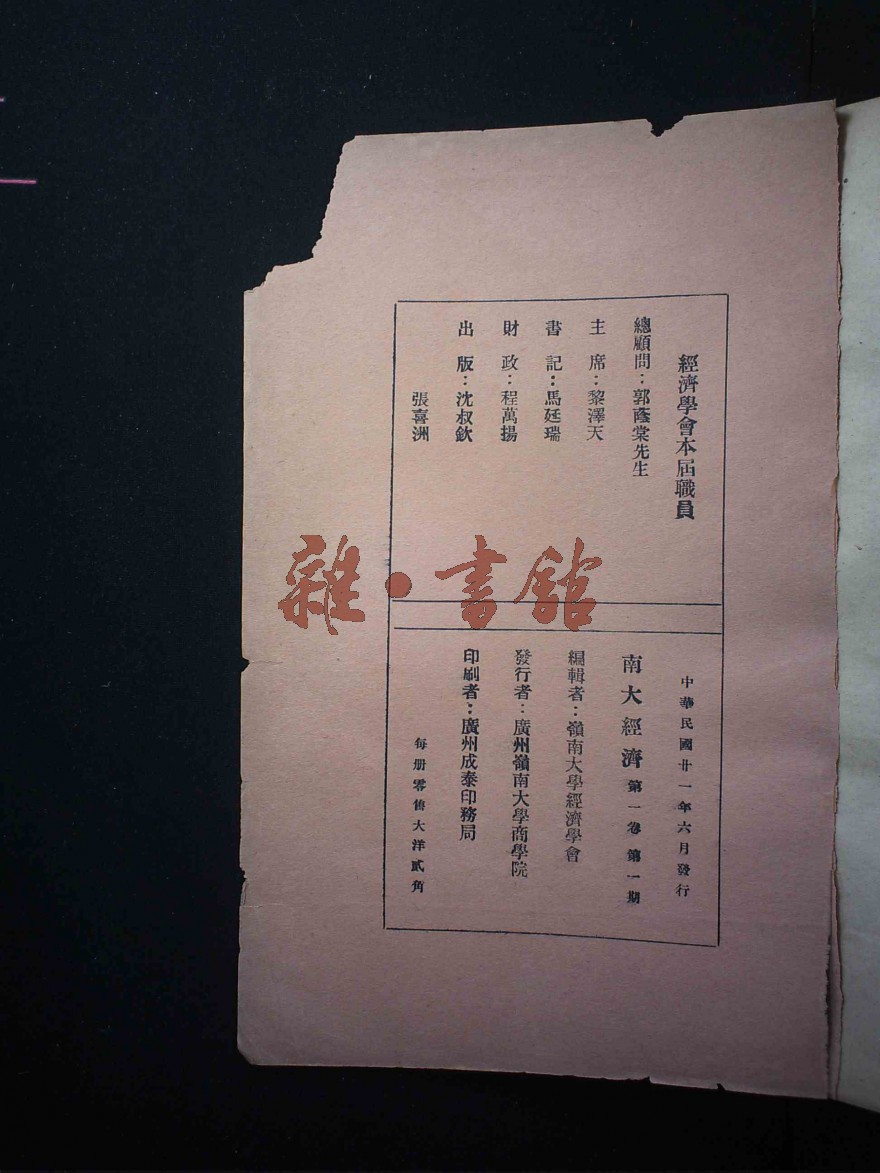 經濟學會本屆職員
總顧問：郭蔭棠先生
主席：黎澤天
書記：馬廷瑞
財政：程萬揚
出版：沈叔欽
張喜洲
中華民國廿一年六月發行
南大經濟 第一卷 第一期
編輯者：嶺南大學經濟學會
發行者：廣州嶺南大學商學院
印刷者：廣州成泰印務局
每册零售大洋貳角
雜·書館